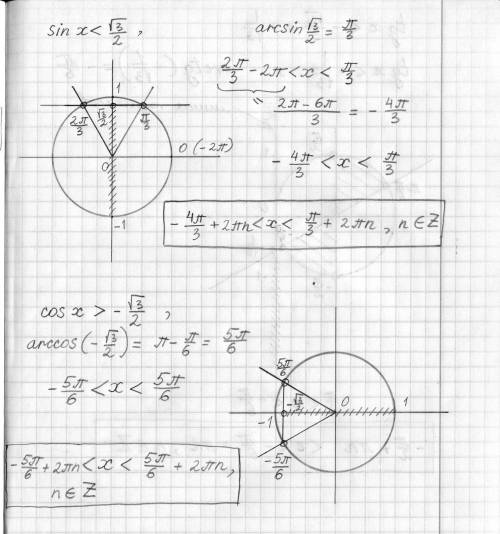 sin x < √3/2 ,
arcsin √3/2 = π/3
2π/3 - 2π < x < π/3
= 2π - 6π/3 = - 4π/3
- 4π/3 < x < π/3
1
2π/3 √3/2 π/3
0 0 (-2π)
-1
- 4π/3 + 2πn < x < π/3 + 2πn , n ∈ Z
cos x > - √3/2 ,
arccos (- √3/2) = π - π/6 = 5π/6
- 5π/6 < x < 5π/6
5π/6
- √3/2 0 1
-1
- 5π/6
- 5π/6 + 2πn < x < 5π/6 + 2πn ,
n ∈ Z